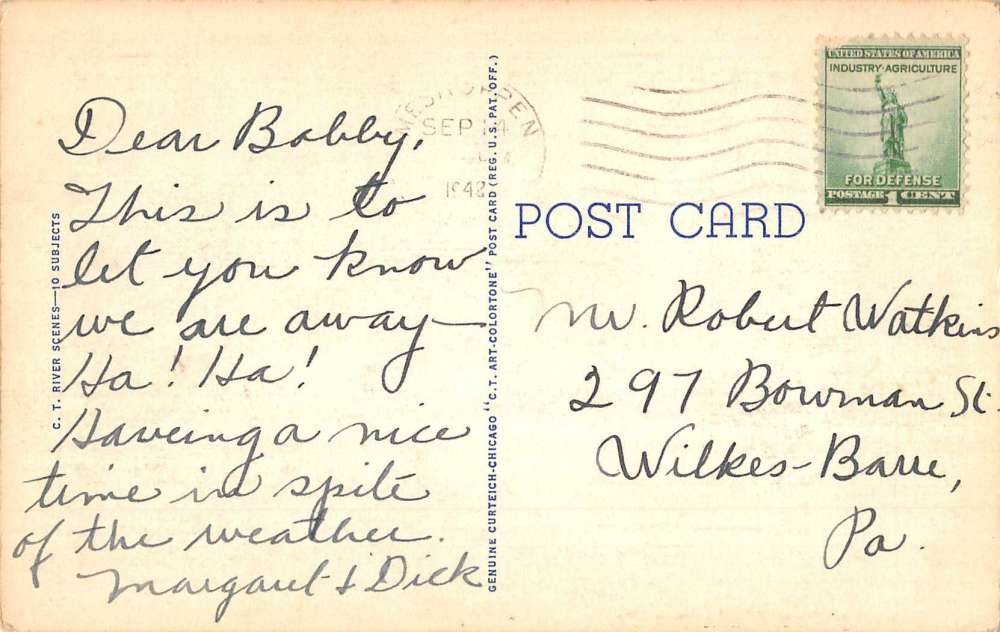 Dear Bobby,
This is to
let you know
we are away—
Ha! Ha!
Haveing a nice
time in spite
of the weather.
Margaret & Dick
C. T. RIVER SCENES—10 SUBJECTS
GENUINE CURTEICH-CHICAGO "C.T. ART-COLORTONE" POST CARD (REG. U.S. PAT. OFF.)
SEP 14
1942
UNITED STATES OF AMERICA
INDUSTRY·AGRICULTURE
FOR DEFENSE
POSTAGE 1 CENT
POST CARD
Mr. Robert Watkins
297 Bowman St.
Wilkes-Barre,
Pa.